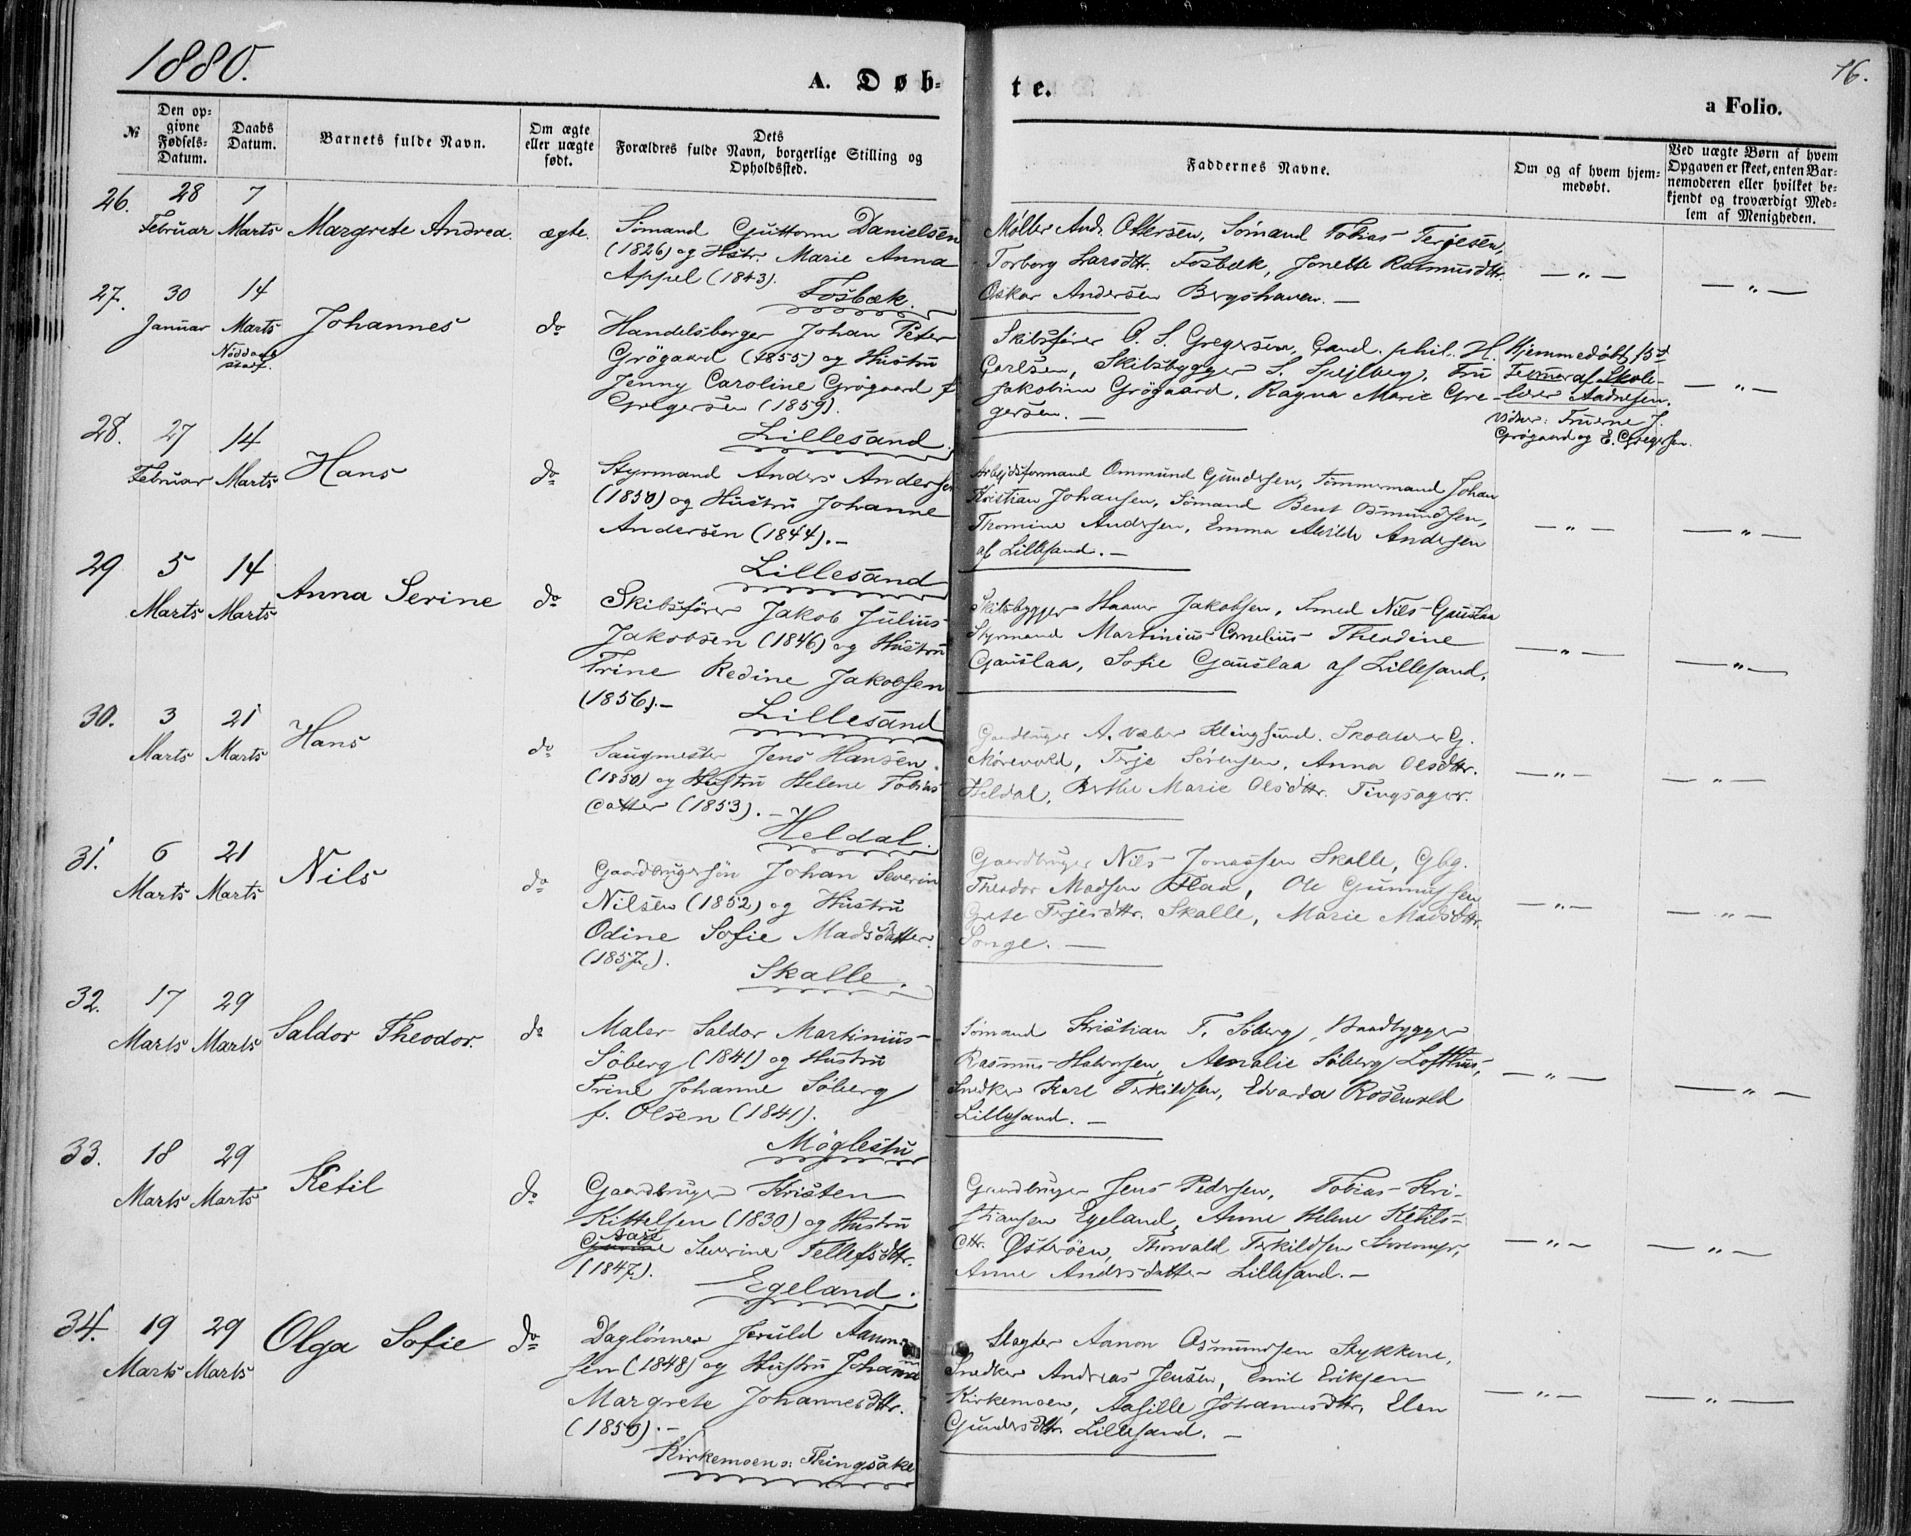 1880.
16.
A. Døb-
te.
a Folio.
№
Den op-
givne
Fødsels-
Datum.
Daabs
Datum.
Barnets fulde Navn.
Om ægte
eller uægte
født.
Dets
Forældres fulde Navn, borgerlige Stilling og
Opholdssted.
Faddernes Navne.
Om og af hvem hjem-
medøbt.
Ved uægte Børn af hvem
Opgaven er skeet, enten Bar-
nemoderen eller hvilket be-
kjendt og troværdigt Med-
lem af Menigheden.
26.
28
Februar
7
Marts
Margrete Andrea.
ægte.
Sømand Guttorm Danielsen
(1826) og Hstr. Marie Anna
Appel (1843).
Fosbæk.
Møller And. Ottersen, Sømand Tobias Terjesen,
Torborg Larsdtr. Fosbæk, Jonette Rasmusdtr.
Oskar Andersen Bergshaven. —
— " —
— " —
27.
30
Januar
14
Marts
Johannes
do
Handelsborger Johan Peter
Grögaard (1855) og Hustru
Jenny Caroline Grögaard f.
Gregersen (1859).
Lillesand.
Skibsfører O. S. Gregersen, Cand. phil. H.
Carlsen, Skibsbygger S. Spejlberg, Fru
Jakobine Grögaard, Ragna Marie Gre-
gersen. —
Hjemmedøbt 15d
Februar af Skole-
lærer Andresen.
Vidner: Fruerne J.
Grögaard og E. Gregersen.
— " —
28.
27
Februar
14
Marts
Hans
do
Styrmand Anders Andersen
(1850) og Hustru Johanne
Andersen (1844). —
Lillesand
Arbejdsformand Ommund Gundersen, Tømmermand Johan
Kristian Johansen, Sømand Bent Osmundsen,
Thomine Andersen, Emma Alvilde Andersen
af Lillesand. —
— " —
— " —
29
5
Marts
14
Marts
Anna Serine
do
Skibsfører Jakob Julius
Jakobsen (1846) og Hustru
Trine Redine Jakobsen
(1856). —
Lillesand
Skibsbygger Haaver Jakobsen, Smed Nils Gauslaa
Styrmand Martinius Cornelius Theodine
Gauslaa, Sofie Gauslaa af Lillesand.
— " —
— " —
30.
3
Marts
21
Marts
Hans
do
Saugmester Jens Hansen
(1850) og Hustru Helene Tobias
datter (1853). —
Heldal.
Gaardbruger A. Væber Klingsund.
Mørevold, Terje Sörensen, Anna Olsdtr.
Heldal, Berthe Marie Olsdtr. Tingsager.
— " —
— " —
31.
6
Marts
21
Marts
Nils
do
Gaardbrugersøn Johan Severin
Nilsen (1852) og Hustru
Odine Sofie Madsdatter.
(1857).
Skalle.
Gaardbruger Nils Jonassen Skalle, Gbg.
Theodor Madsen Flaa, Ole Gunnufsen
Grete Terjesdtr. Skalle, Marie Madsdtr.
Songe. —
— " —
— " —
32.
17
Marts
29
Marts
Saldor Theodor.
do
Maler Saldor Martinius
Söberg (1841) og Hustru
Trine Johanne Söberg
f. Olsen (1841).
Møglestu
Sømand Kristian T. Söberg, Baadbygger
Rasmus Halvorsen, Amalie Söberg Lofthus,
Snedker Karl Terkildsen, Edvarda Rosenvold
Lillesand. —
— " —
— " —
33.
18
Marts
29
Marts
Ketil
do
Gaardbruger Kristen
Kittelsen (1830) og Hustru
Severine Tellefsdtr.
(1847).
Egeland.
Gaardbruger Jens Pedersen, Tobias Kri-
stiansen Egeland, Anne Helene Ketils-
dtr. Østrøen, Thorvald Terkildsen
Anne Andersdatter Lillesand. —
— " —
— " —
34.
19
Marts
29
Marts
Olga Sofie
do
Daglønner Jeruld Aanon-
sen (1848) og Hustru Johanne
Margrete Johannesdtr.
(1850). —
Kirkemoen Thingsake
Slagter Aanon Osmundsen Stykkene,
Snedker Andreas Jensen, Emil Eriksen
Kirkemoen, Aasille Johannesdtr, Elen
Gundersdtr. Lillesand. —
— " —
— " —